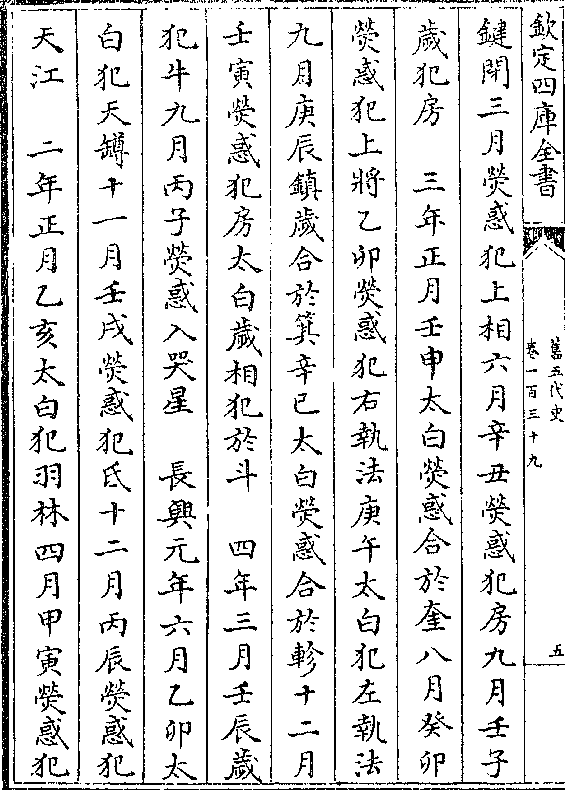 欽定四庫全書
舊五代史
卷一百三十九
五
鍵閉三月熒惑犯上相六月辛丑熒惑犯房九月壬子
歲犯房　三年正月壬申太白熒惑合於奎八月癸卯
熒惑犯上將乙卯熒惑犯右執法庚午太白犯左執法
九月庚辰鎮歲合於箕辛巳太白熒惑合於軫十二月
壬寅熒惑犯房太白歲相犯於斗　四年三月壬辰歲
犯牛九月丙子熒惑入哭星　長興元年六月乙卯太
白犯天罇十一月壬戌熒惑犯氐十二月丙辰熒惑犯
天江　二年正月乙亥太白犯羽林四月甲寅熒惑犯